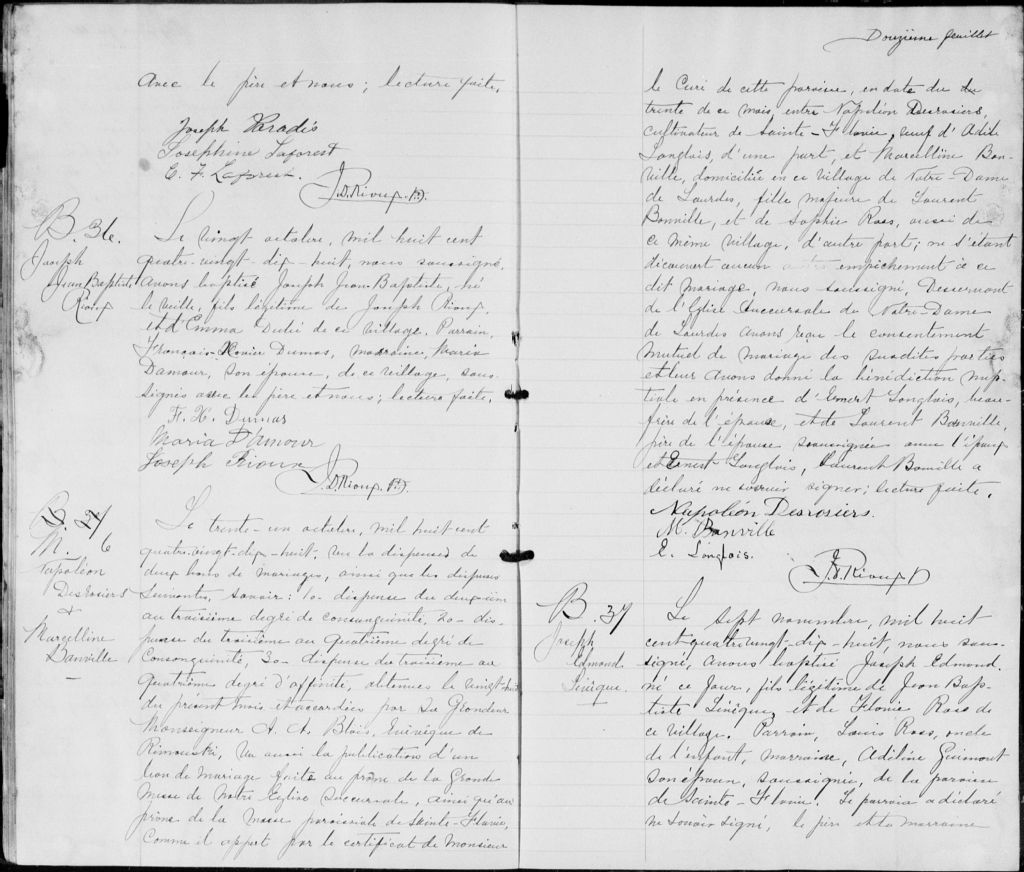 avec le père et nous; lecture faite.
Joseph Paradis
Joséphine Laforest
E. F. Laforest.
J. D. Rioux Ptr.
B. 36.
Joseph
Jean Baptiste
Rioux
Le vingt octobre, mil huit cent
quatre-vingt-dix-huit, nous soussigné,
avons baptisé Joseph Jean-Baptiste, né
la veille, fils légitime de Joseph Rioux
et d'Emma Dubé de ce village. Parrain,
François-Xavier Dumas, marraine, Maria
Damour, son épouse, de ce village, sous-
signés avec le père et nous; lecture faite.
F. X. Dumas
Maria D'Amour
Joseph Rioux
J. D. Rioux Ptr.
M. 6
Napoléon
Desrosiers
&
Marcelline
Banville
Le trente-un octobre, mil huit cent
quatre-vingt-dix-huit, vu la dispense de
deux bans de mariages, ainsi que les dispenses
suivantes, savoir: 1o- dispense du deuxième
au troisième degré de consanguinité, 2o- dis-
pense du troisième au quatrième degré de
consanguinité, 3o- dispense du troisième au
quatrième degré d'affinité, obtenues le vingt-huit
du présent mois et accordées par Sa Grandeur
Monseigneur A. A. Blais, Evêque de
Rimouski, vu aussi la publication d'un
ban de mariage faite au prône de la Grande
Messe de Notre Eglise Succursale, ainsi qu'au
prône de la Messe paroissiale de Sainte-Flavie,
comme il appert par le certificat de Monsieur
Douzième feuillet
le Curé de cette paroisse, en date du du
trente de ce mois, entre Napoléon Desrosiers,
cultivateur de Sainte-Flavie, veuf d'Adèle
Langlois, d'une part, et Marcelline Ban-
ville, domiciliée en ce village de Notre-Dame
de Lourdes, fille majeure de Laurent
Banville, et de Sophie Ross, aussi de
ce même village, d'autre part; ne s'étant
découvert aucun empêchement à ce
dit mariage, nous soussigné, Desservant
de l'Eglise Succursale de Notre-Dame
de Lourdes avons reçu le consentement
mutuel de mariage des susdites parties
et leur avons donné la bénédiction nup-
tiale en présence d'Ernest Langlois, beau-
frère de l'épouse, et de Laurent Banville,
père de l'épouse soussignée avec l'époux
et Ernest Langlois, Laurent Banville a
déclaré ne savoir signer; lecture faite.
Napoléon Desrosiers.
M. Banville
E. Langlois.
J. D. Rioux Ptr
B. 37
Joseph
Edmond
Sénèque.
Le sept novembre, mil huit
cent quatre vingt-dix-huit, nous sous-
signé, avons baptisé Joseph Edmond.
né ce jour, fils légitime de Jean Bap-
tiste Sénèque, et de Flavie Ross de
ce village. Parrain, Louis Ross, oncle
de l'enfant, marraine, Adéline Guimont
son épouse, soussignée, de la paroisse
de Sainte-Flavie. Le parrain a déclaré
ne savoir signé, le père et la marraine